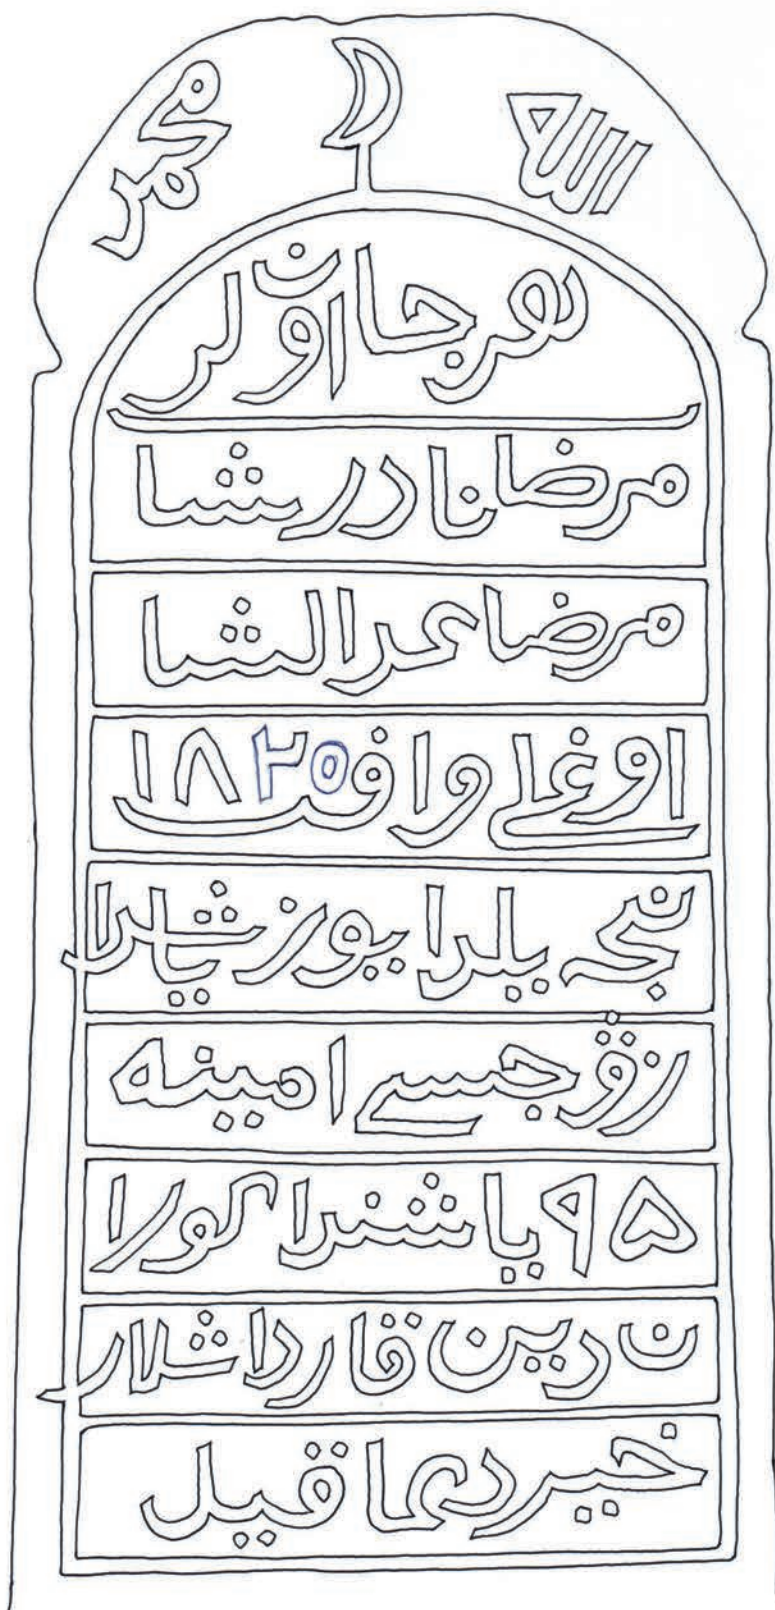 الله محمد
هر جان اولر
مرضا نادرشا
مرضا عدالشا
اوغلی وافت ١٨٢٥
نجه يلدا يوز ياشدا
زوجسی امينه
٩۵ ياشندا كورا
ن دين قارداشلار
خير دعا قيل